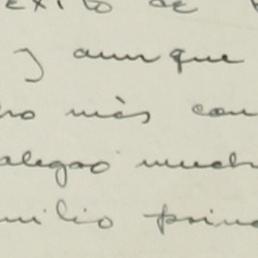 exito de
y aunque
ho más con
alegao much
milio princ